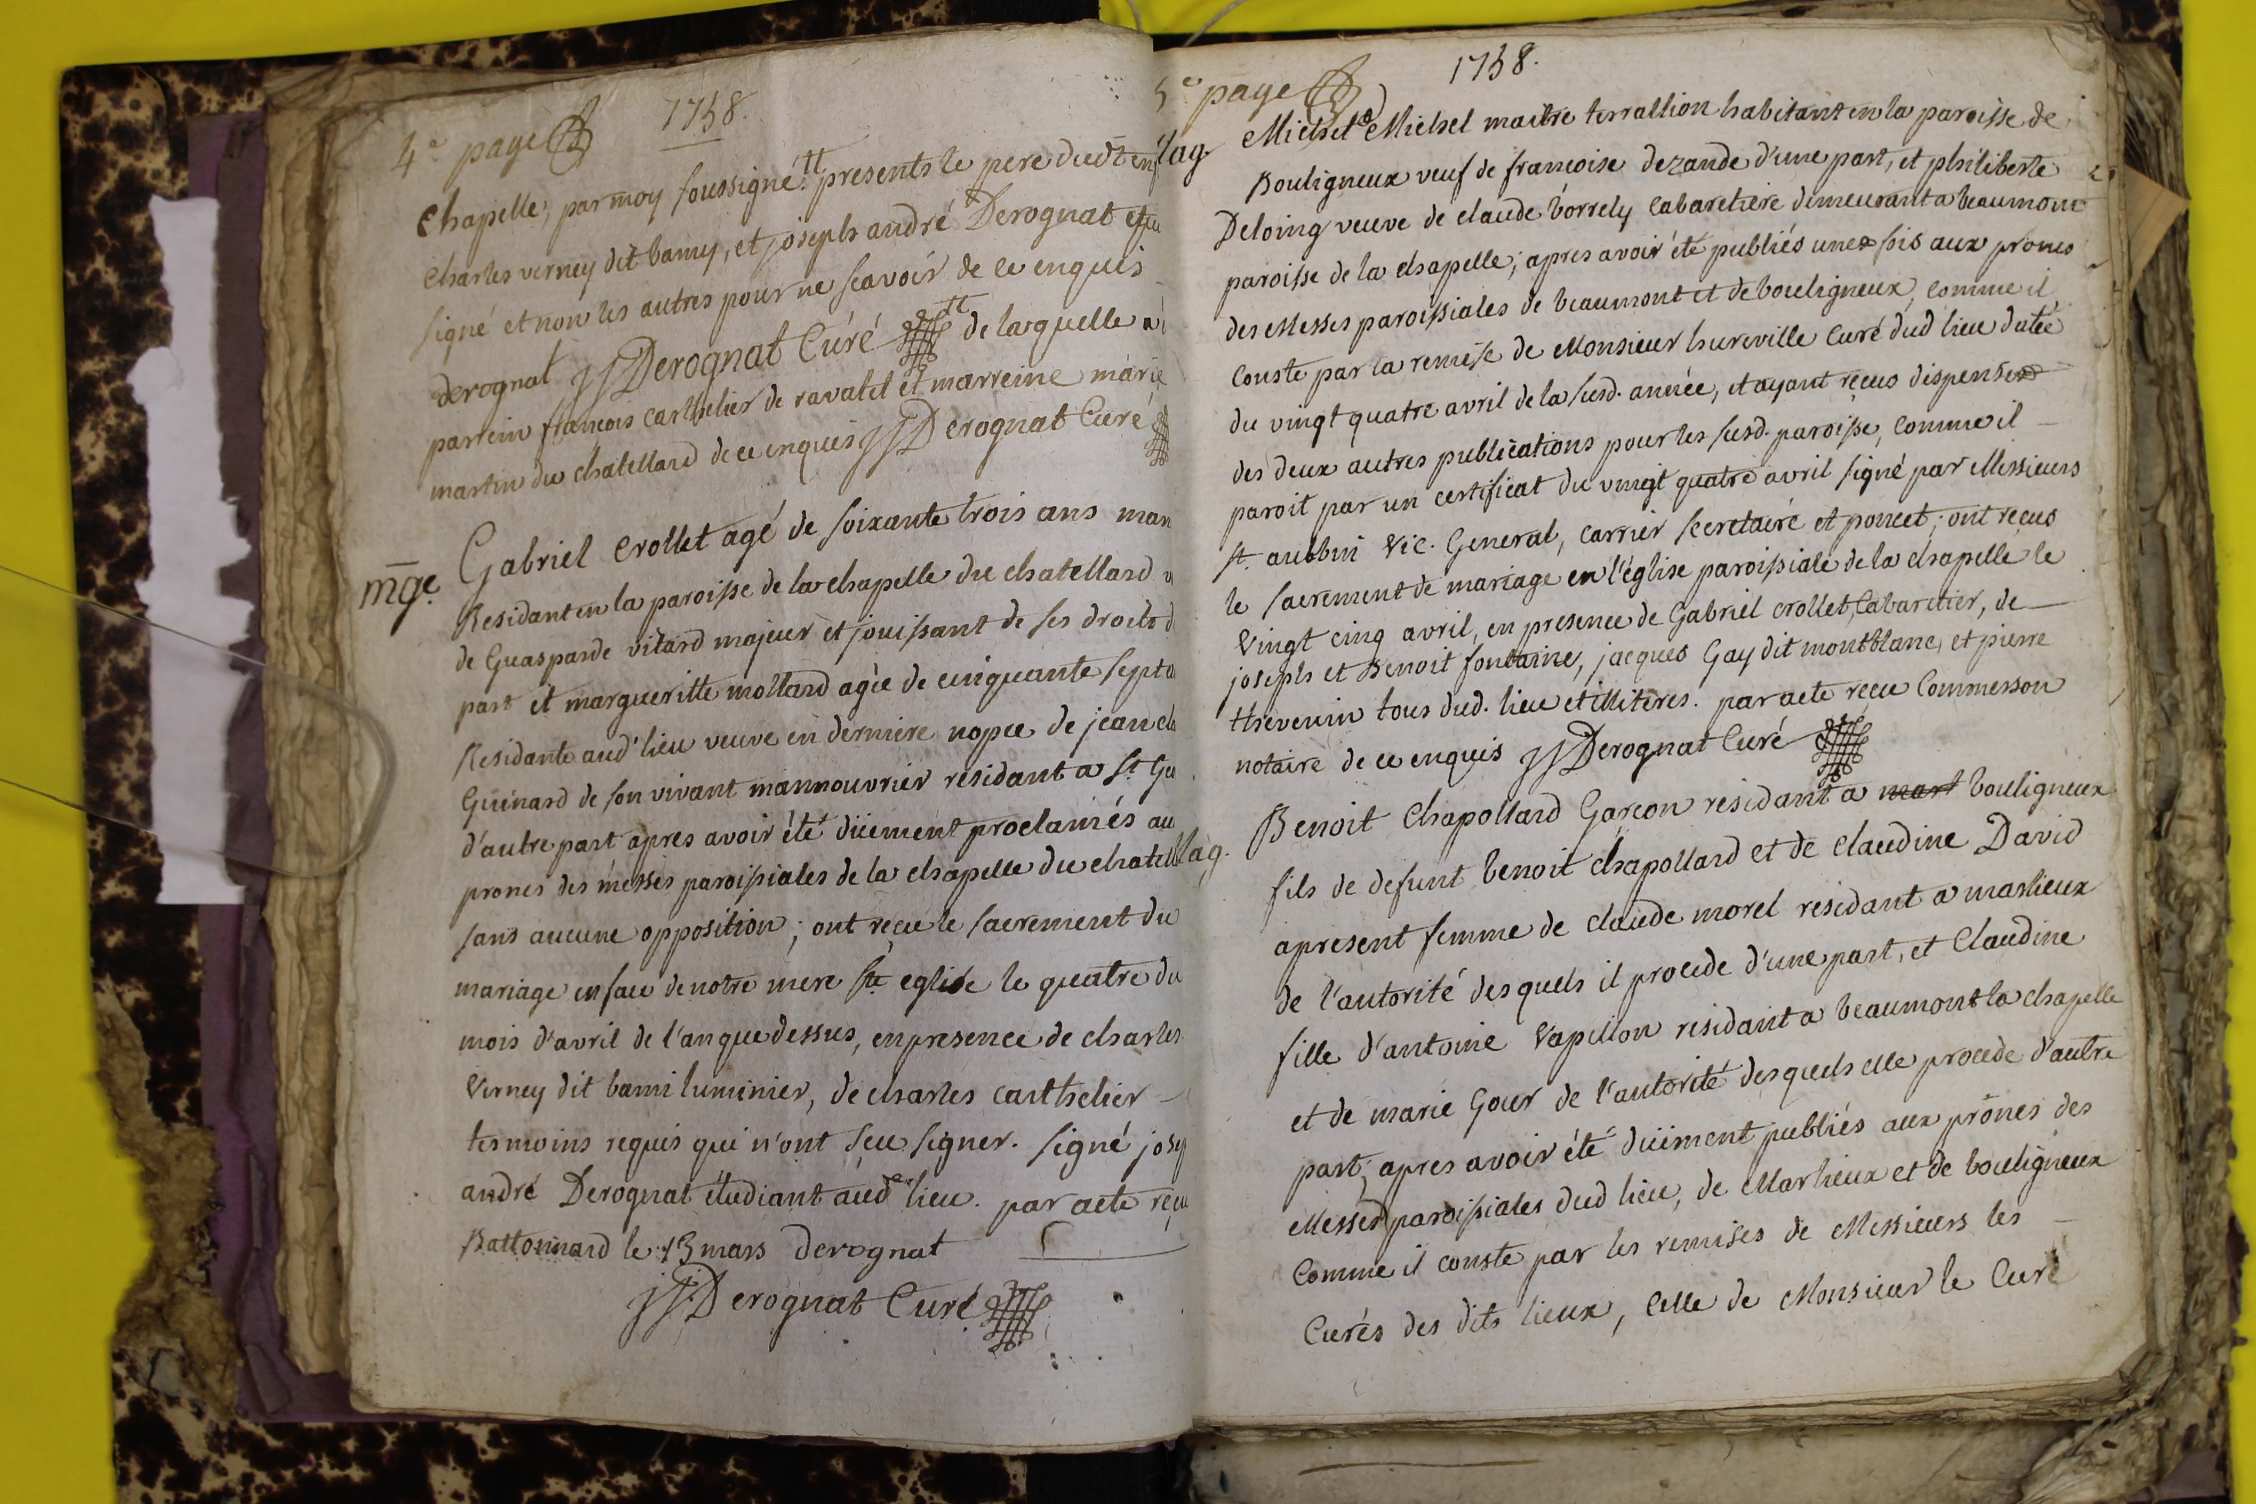 4e page
1758.
chapelle, par moy soussigné tt presents le pere dudt enf
charles verney dit bamy, et joseph andré Derognat qui a
signé et non les autres pour ne scavoir de ce enquis
derognat JJ Derognat Curé tt de laquelle a
parrein francois carthelier de ravatel et marreine marie
martin du chatellard de ce enquis JJ Derognat Curé
mge.
Gabriel crollet agé de soixante trois ans man
Residant en la paroisse de la chapelle du chatellard v
de Guasparde vitard majeur et jouissant de ses droits d
part et margueritte mollard agée de cinquante sept a
Residante aud' lieu veuve en derniere nopce de jean cla
Guinard de son vivant mannouvrier residant a St Ge
d'autre part apres avoir été düement proclamés au
prones des messes paroissiales de la chapelle du chatell
sans aucune opposition; ont reçu le sacrement du
mariage en face de notre mere Ste eglise le quatre du
mois d'avril de l'an que dessus, en presence de charles
Verney dit bami luminier, de charles carthelier
temoins requis qui n'ont sceu signer. signé josep
andré Derognat étudiant aud lieu. par acte reçu
Battonnard le 13 mars derognat
JJ. Derognat Curé
5e page
1758.
Michel Michel maitre terrallion habitant en la paroisse de
Bouligneux veuf de francoise dezande d'une part, et philiberte
Deloing veuve de claude borrely Cabaretiere demeurant a beaumont
paroisse de la chapelle; apres avoir été publiés une fois aux prones
des Messes paroissiales de beaumont et de bouligneux, comme il
conste par la remise de Monsieur hureville Curé dud lieu datée
du vingt quatre avril de la susd. année, et ayant reçus dispense
des deux autres publications pour les susd. paroisse, comme il
paroit par un certificat du vingt quatre avril signé par Messieurs
st. aubbin Vic. General, carrier secretaire et poncet; ont reçus
le sacrement de mariage en l'église paroissiale de la chapelle le
Vingt cinq avril, en presence de Gabriel crollet, Cabaretier, de
joseph et Benoit fontaine, jacques Gay dit montblanc, et pierre
thevenin tous dud. lieu et illiteres. par acte reçu Commerson
notaire de ce enquis JJ Derognat Curé
Benoit Chapollard Garcon residant a mart bouligneux
fils de defunt benoit chapollard et de claudine David
apresent femme de claude morel residant a marlieux
de l'autorité des quels il procede d'une part, et Claudine
fille d'antoine Vapillon residant a beaumont la chapelle
et de marie Gour de l'autorité desquels elle procede d'autre
part; apres avoir été düement publiés aux prônes des
Messes paroissiales dud lieu, de Marlieux et de bouligneux
Comme il conste par les remises de Messieurs les
Curés des dits lieux, Celle de Monsieur le Curé